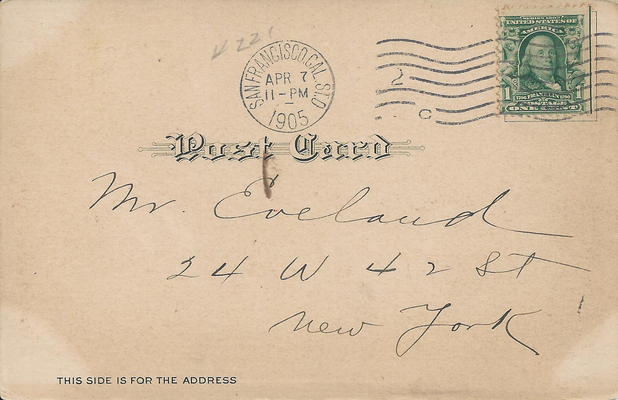 V221
SAN FRANCISCO, CAL. STA. D
APR 7
11-PM
1905
2
C
SERIES 1902
UNITED STATES OF
AMERICA
1 FRANKLIN 1
POSTAGE
ONE CENT
Post Card
Mr. Eveland
24 W 42 St
New York
THIS SIDE IS FOR THE ADDRESS